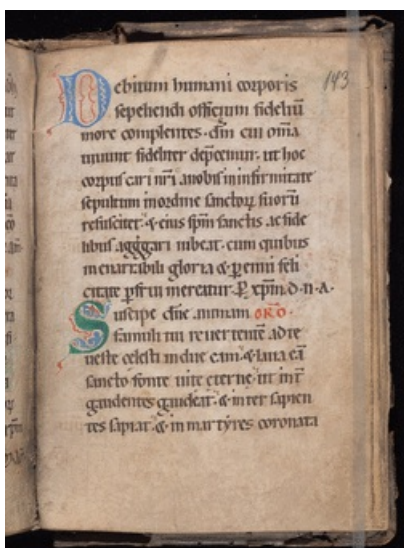 143
Debitum humani corporis
sepeliendi officium fideliū
more complentes. dm̄ cui om̄a
uiuunt fideliter dep̄cemur. ut hoc
corpus cari nr̄i a nobis in infirmitate
sepultum in ordine sanctoꝝ suoꝝ
resuscitet. & eius sp̄m sanctis ac fide
libus aggregari iubeat. cum quibus
inenarrabili gloria & ꝑenni feli
citate ꝑfrui mereatur. P̄ xp̄m. d. n. A.
Suscipe dn̄e animam ORO.
famuli tui reuertentē ad te
ueste celesti indue eam. & laua eā
sancto fonte uite eterne. ut int̄
gaudentes gaudeat. & inter sapien
tes sapiat. & in martyres coronata